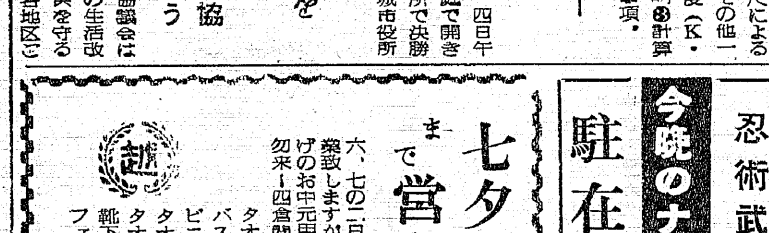 たによる
その他一
度（K・
③計算
項。
四日午
庭で開き
所で決勝
城市役所
を
協
う
協議会は
の生活改
良を守る
各地区ご
忍術武
今晩のナ
駐在
七夕
まで営
六、七の二日
業致しますが
げのお中元用
勿来ー四倉間
越
タオ
バス
ビニ
タオ
タオ
靴下
ファ